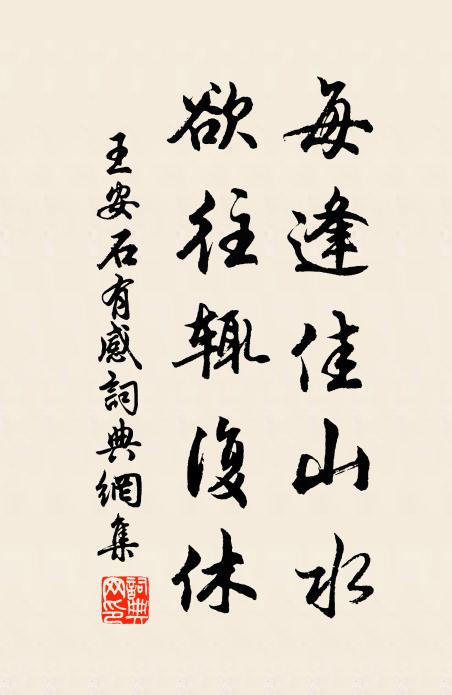 每逢佳山水
欲往辄復休
王安石有感詞典網集
詞典網印